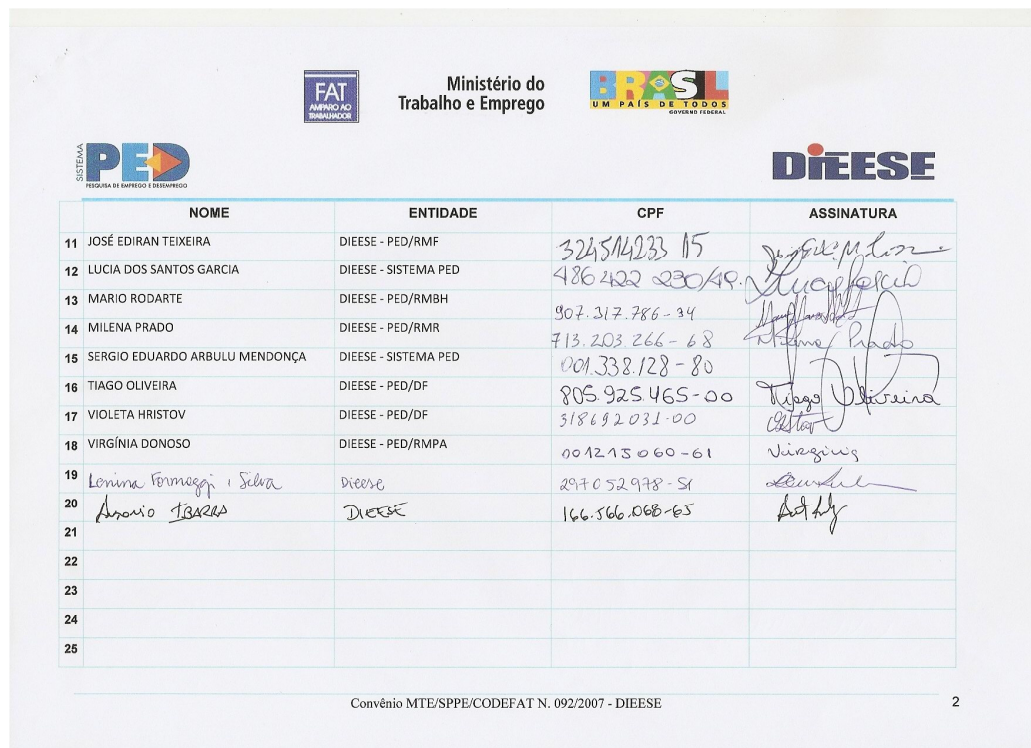 FAT
AMPARO AO
TRABALHADOR
Ministério do
Trabalho e Emprego
BRASIL
UM PAÍS DE TODOS
GOVERNO FEDERAL
SISTEMA
PED
PESQUISA DE EMPREGO E DESEMPREGO
DIEESE
NOME ENTIDADE CPF ASSINATURA
11 JOSÉ EDIRAN TEIXEIRA DIEESE - PED/RMF 324514233 15
12 LUCIA DOS SANTOS GARCIA DIEESE - SISTEMA PED 486422 230/49.
13 MARIO RODARTE DIEESE - PED/RMBH 907.317.786-34
14 MILENA PRADO DIEESE - PED/RMR 713.203.266-68 Milena Prado
15 SERGIO EDUARDO ARBULU MENDONÇA DIEESE - SISTEMA PED 001.338.128-80
16 TIAGO OLIVEIRA DIEESE - PED/DF 805.925.465-00 Tiago Oliveira
17 VIOLETA HRISTOV DIEESE - PED/DF 318692031-00
18 VIRGÍNIA DONOSO DIEESE - PED/RMPA 001215060-61 Virginia
19 Lenina Formaggi Silva Dieese 297052978-51
20 IBARRA DIEESE 166.566.068-65
21
22
23
24
25
Convênio MTE/SPPE/CODEFAT N. 092/2007 - DIEESE
2